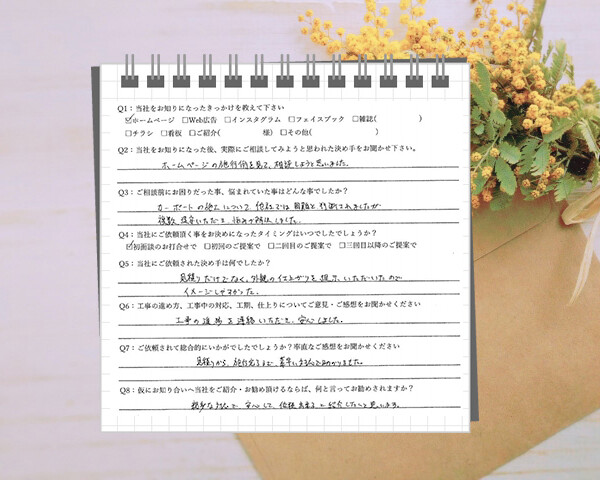 Q1：当社をお知りになったきっかけを教えて下さい
☑ホームページ　□Web広告　□インスタグラム　□フェイスブック　□雑誌(　　　　)
□チラシ　□看板　□ご紹介(　　　　様)　□その他(　　　　　　)
Q2：当社をお知りになった後、実際にご相談してみようと思われた決め手をお聞かせ下さい。
ホームページの施行例を見て、相談しようと思いました。
Q3：ご相談前にお困りだった事、悩まれていた事はどんな事でしたか？
カーポートの施工について、他社では困難と判断されましたが
複数提案いただき、悩みが解決しました。
Q4：当社にご依頼頂く事をお決めになったタイミングはいつでしたでしょうか？
☑初面談のお打合せで　□初回のご提案で　□二回目のご提案で　□三回目以降のご提案で
Q5：当社にご依頼された決め手は何でしたか？
見積りだけでなく、外観の仕上がりを提示いただいたので
イメージしやすかった。
Q6：工事の進め方、工事中の対応、工期、仕上りについてご意見・ご感想をお聞かせください
工事の進捗を連絡いただき、安心しました。
Q7：ご依頼されて総合的にいかがでしたでしょうか？率直なご感想をお聞かせください
見積りから、施行完了まで、
Q8：仮にお知り合いへ当社をご紹介・お勧め頂けるならば、何と言ってお勧めされますか？
安心して、依頼出来ると紹介したいと思います。